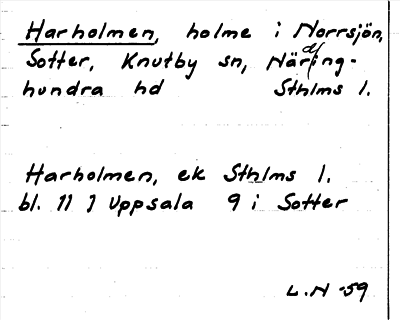 Harholmen, holme i Norrsjön,
Sotter, Knutby sn, Närding-
hundra hd Sthlms l.
Harholmen, ek Sthlms l.
bl. 11 J Uppsala 9 i Sotter
L.N -59